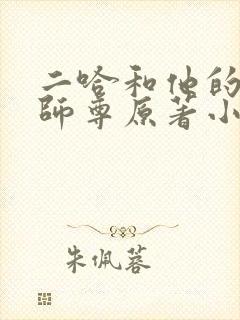 二哈和他的
師尊原著小
朱佩蓉